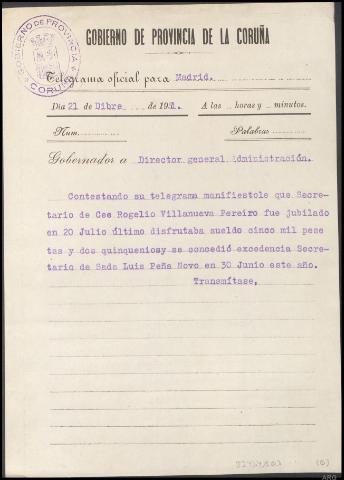 GOBIERNO DE PROVINCIA DE LA CORUÑA
GOBIERNO DE PROVINCIA
CORUÑA
Telegrama oficial para Madrid.
Dia 21 de Dibre de 1931. A las horas y minutos.
Núm. Palabras
Gobernador a Director general Administración.
Contestando su telegrama manifiestole que Secre-
tario de Cee Rogelio Villanueva Pereiro fue jubilado
en 20 Julio último disfrutaba sueldo cinco mil pese
tas y dos quinqueniosy se concedió excedencia Secre-
tario de Sada Luis Peña Novo en 30 Junio este año.
Transmítase,
(6)
ARG